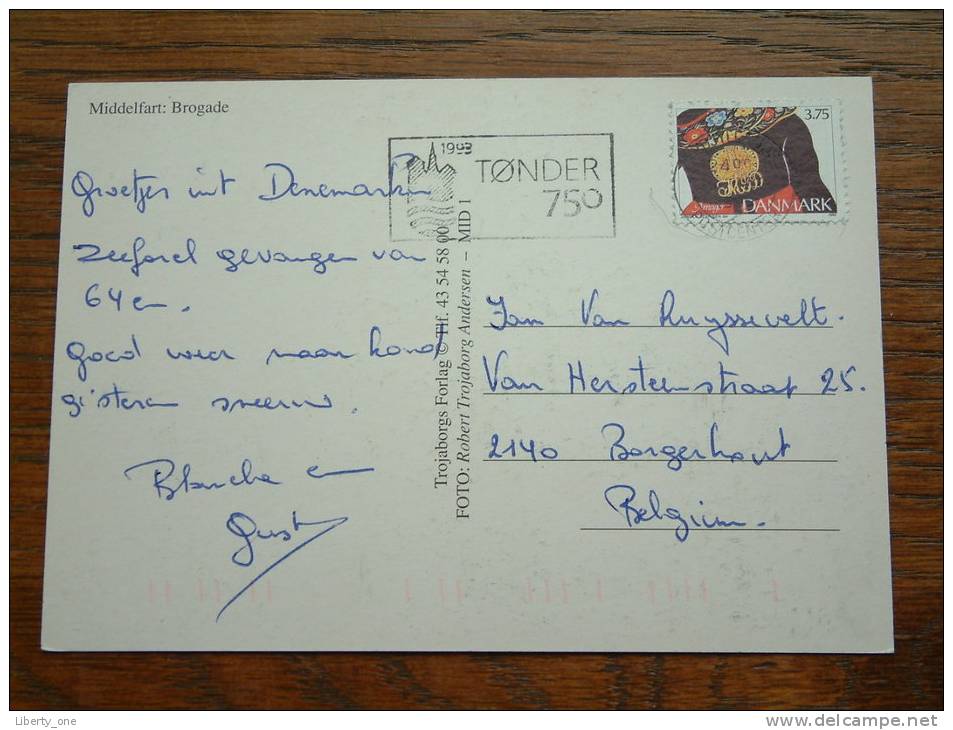 Middelfart: Brogade
Groetjes uit Denemarken
Zeeforel gevangen van
64 cm.
Goed weer maar koud
gisteren sneeuw.
Blanche en
Gust
1993
TØNDER
750
3.75
DANMARK
Trojaborgs Forlag © Tlf. 43 54 58 00
FOTO: Robert Trojaborg Andersen – MID 1
Jan Van Ruyssevelt.
Van Hersteenstraat 25.
2140 Borgerhout
Belgium.
Liberty_one
www.delcampe.net